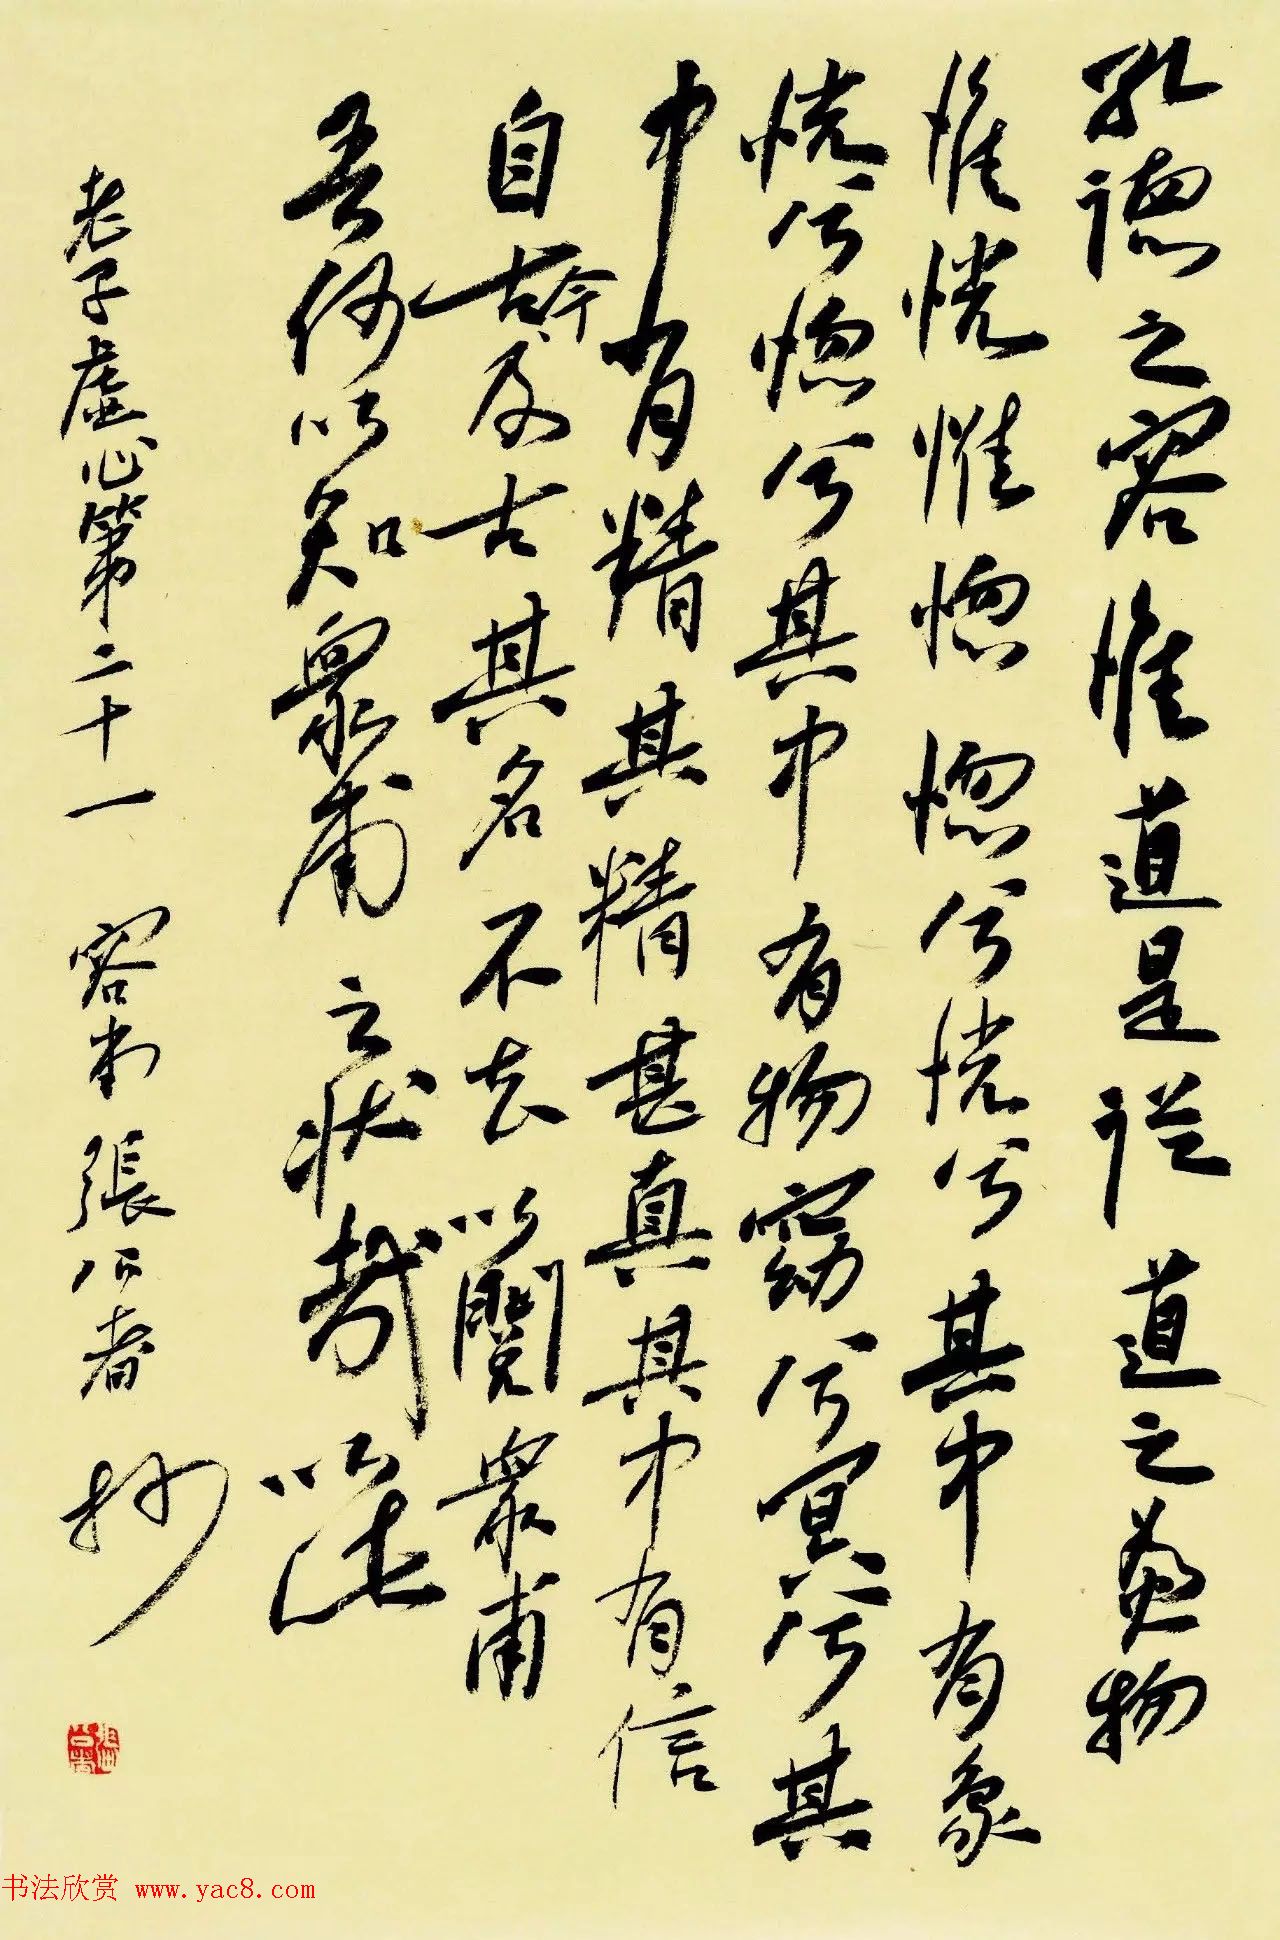 孔德之容惟道是從道之為物
惟恍惟惚惚兮恍兮其中有象
恍兮惚兮其中有物窈兮冥兮其
中有精其精甚真其中有信
自古今及古其名不去以閱眾甫
吾何以知眾甫之狀哉以此
老子虛心第二十一 容堂張公者抄
书法欣赏 www.yac8.com